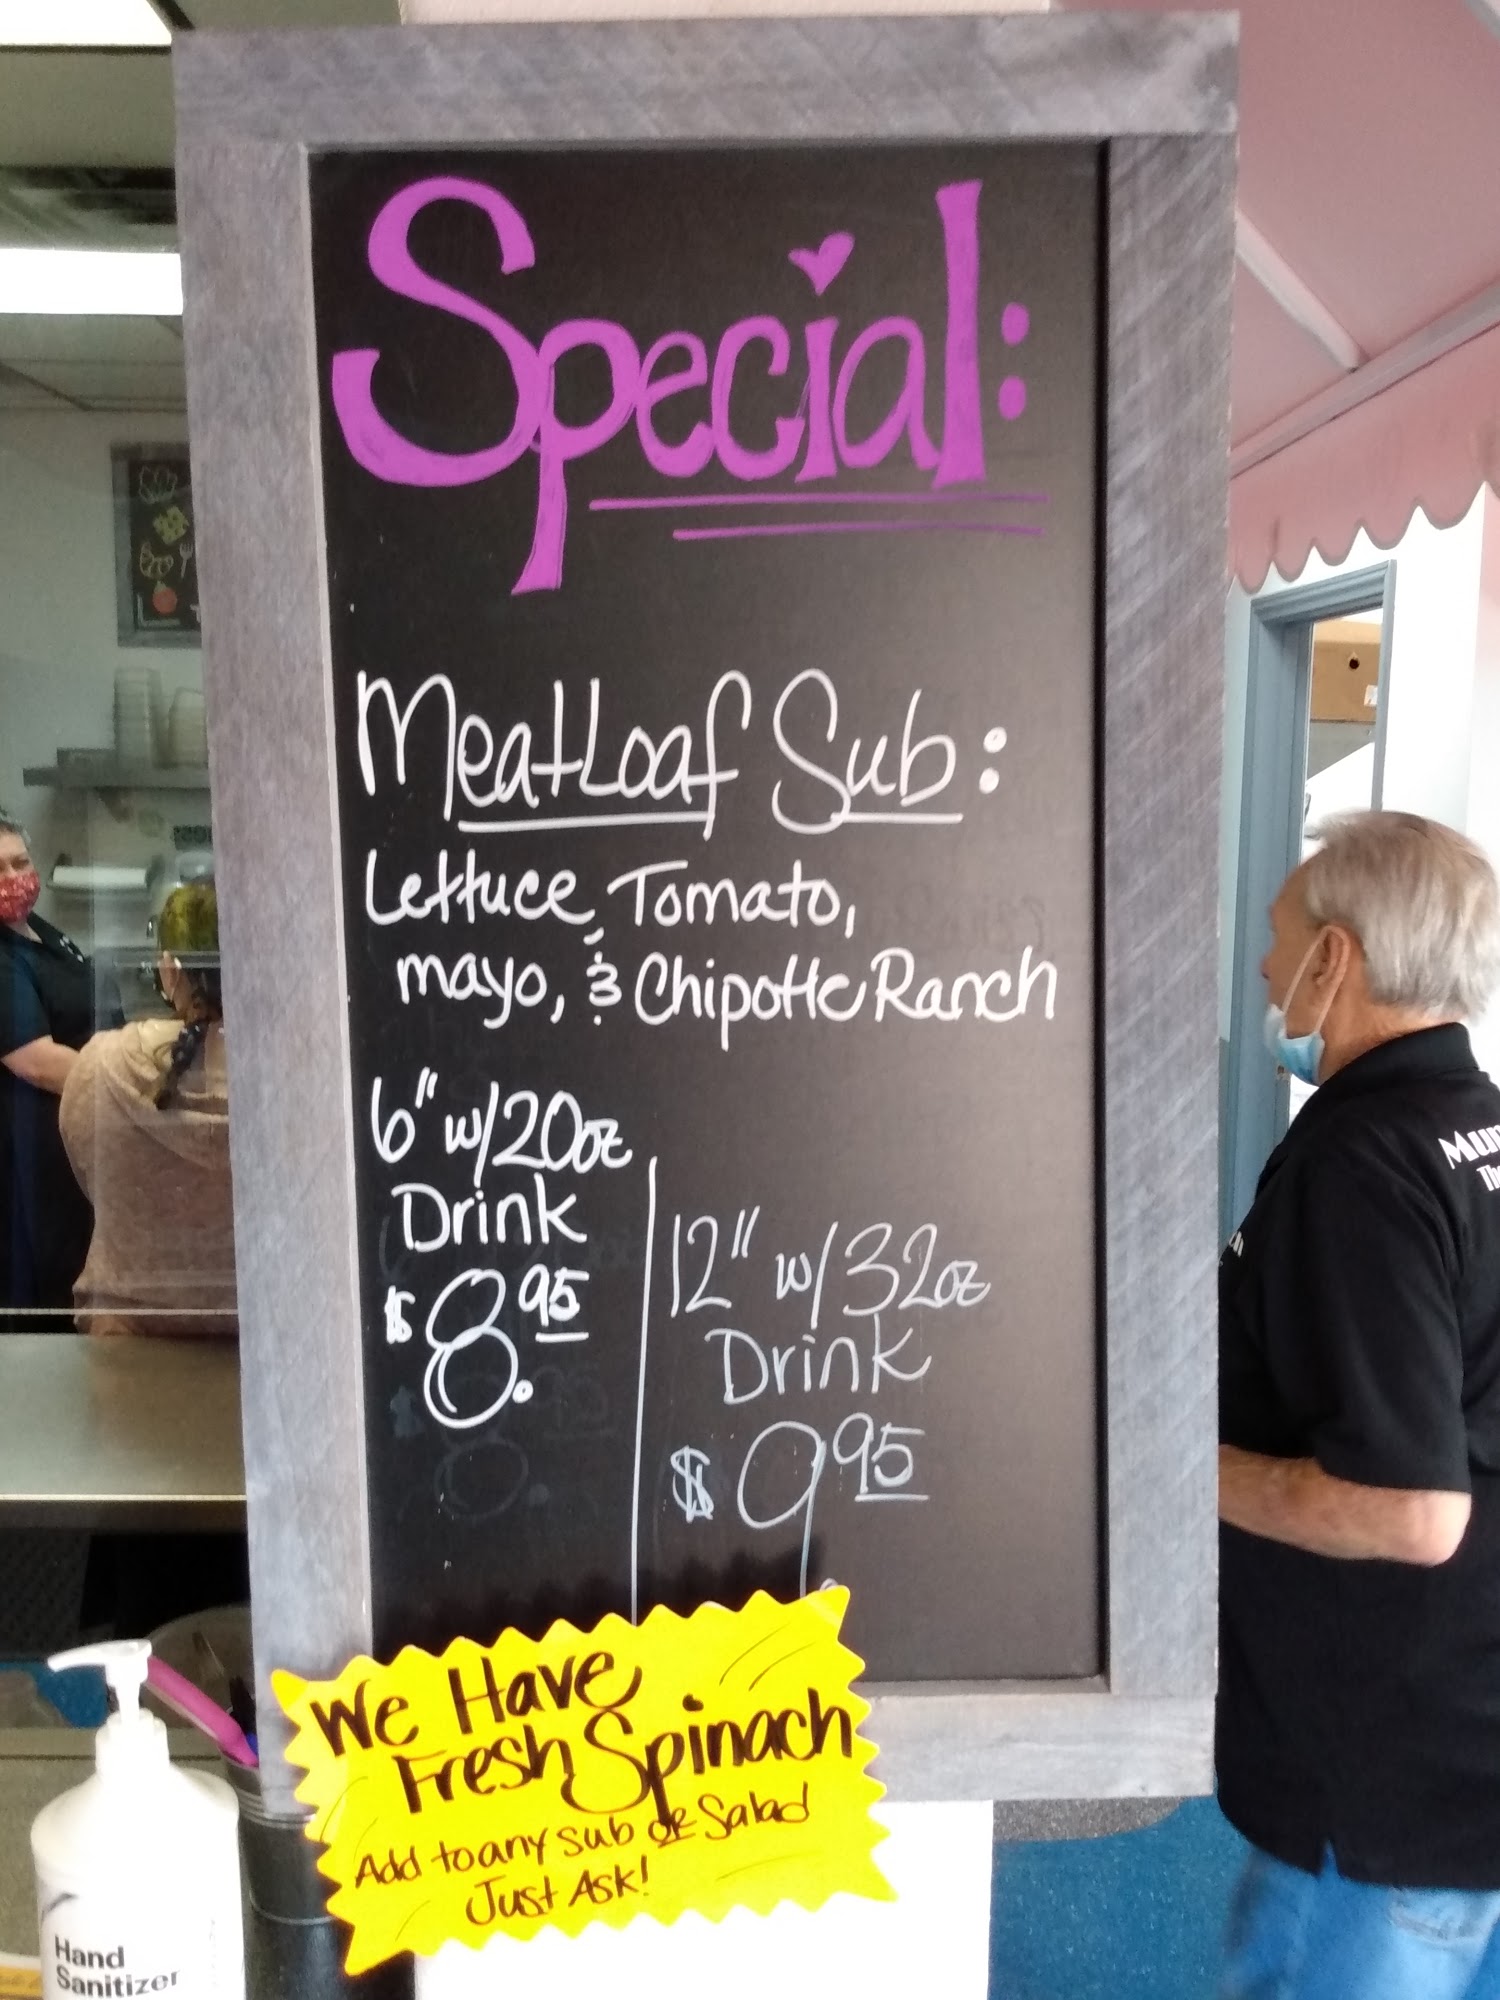 Special:
MeatLoaf Sub:
Lettuce, Tomato,
mayo, & Chipotle Ranch
6" w/20oz
Drink
$8.95
12" w/32oz
Drink
$9.95
We Have
Fresh Spinach
Add to any sub or Salad
Just Ask!
Hand
Sanitizer